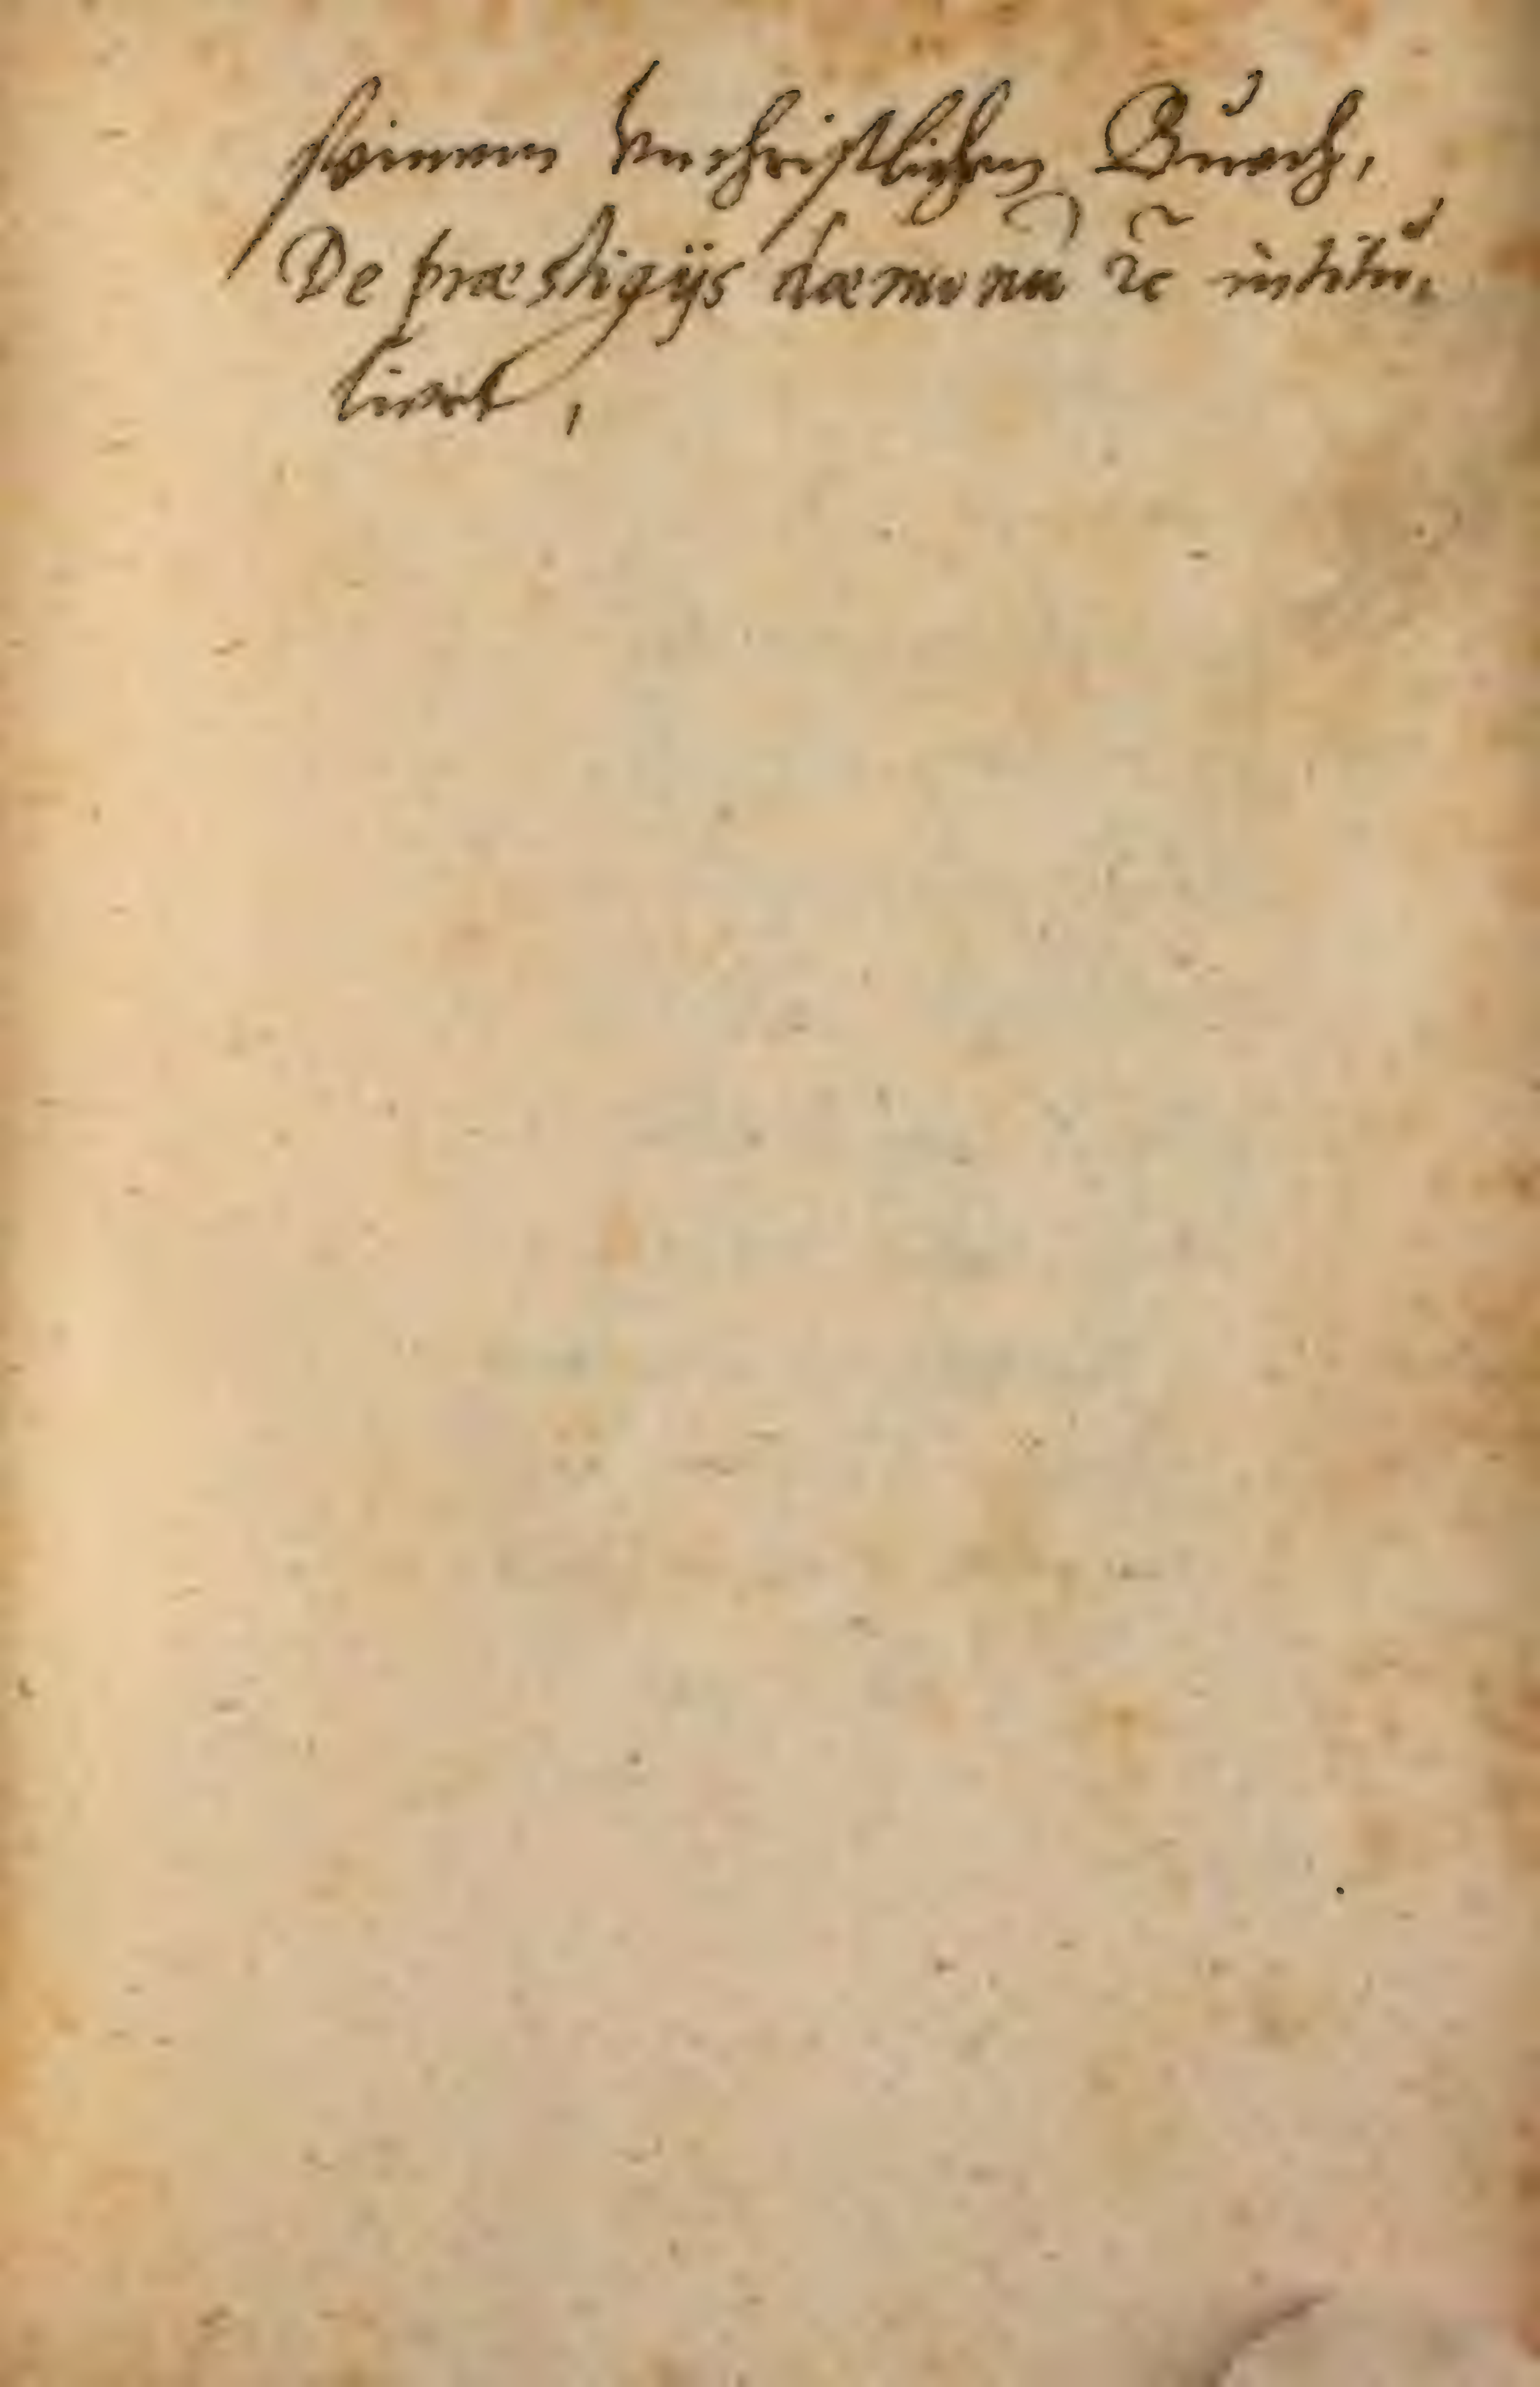 seinem vnchristlichen Buech,
De præstigijs dæmonũ ꝛc intitu,
liert,